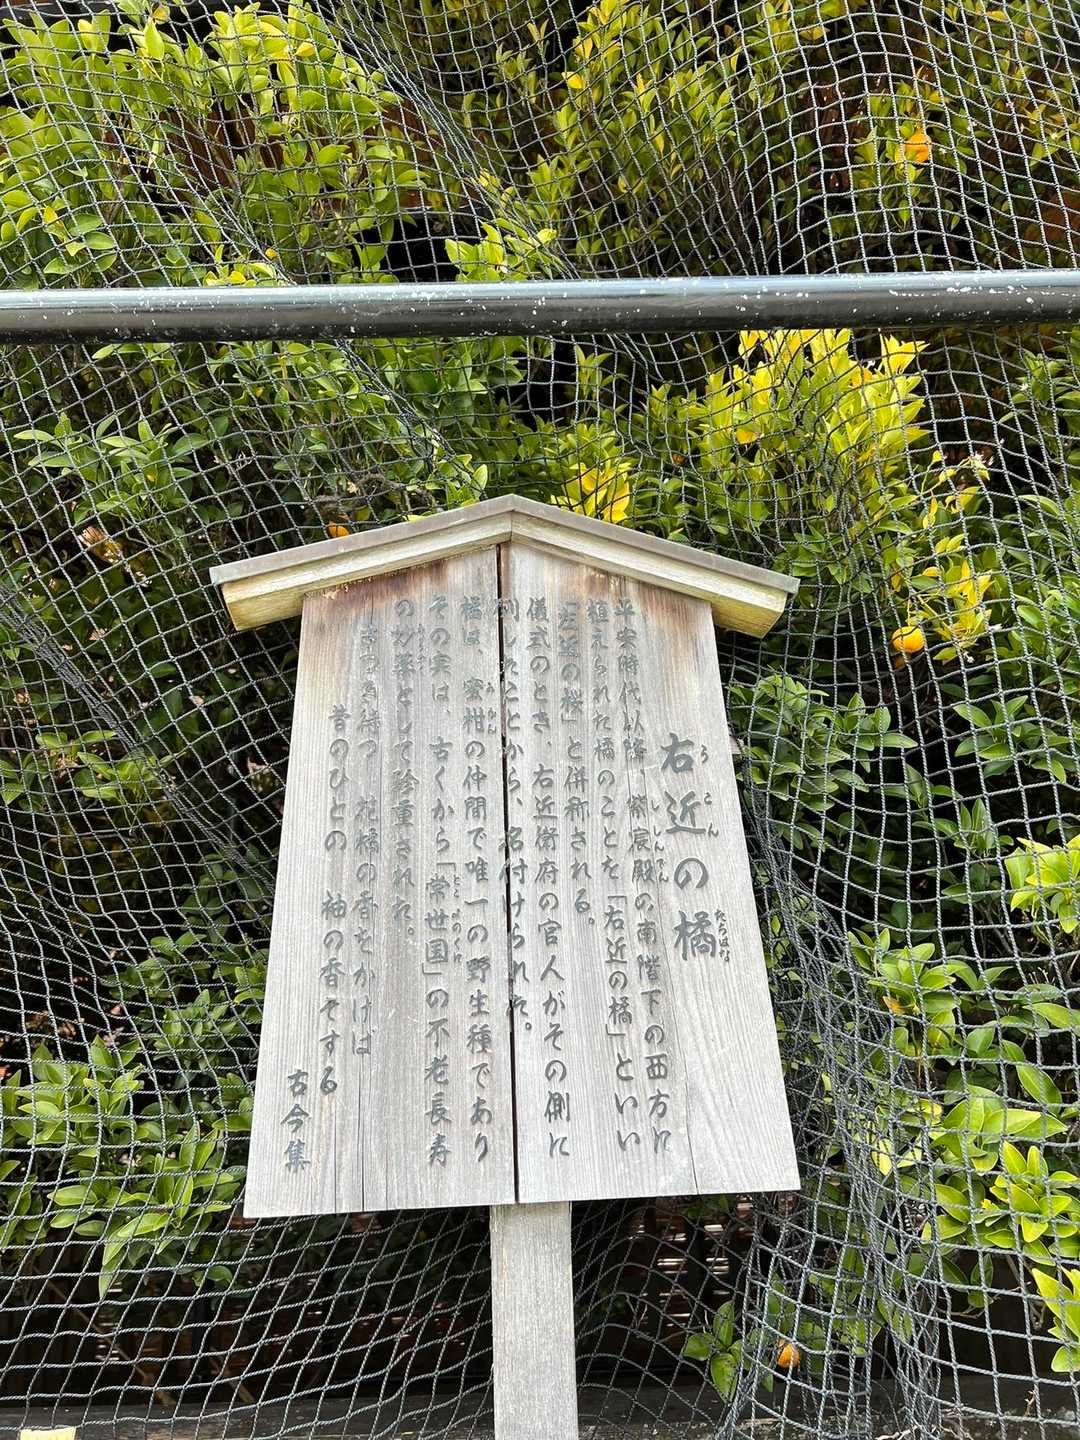 右近の橘
うこん
たちばな
平安時代以降、紫宸殿の南階下の西方に
ししんでん
植えられた橘のことを「右近の橘」といい
「左近の桜」と併称される。
儀式のとき、右近衛府の官人がその側に
列したことから、名付けられた。
橘は、蜜柑の仲間で唯一の野生種であり
みかん
その実は、古くから「常世国」の不老長寿
とこよのくに
の妙薬として珍重された。
みょうやく
さつき待つ 花橘の香をかげば
昔のひとの 袖の香ぞする
古今集